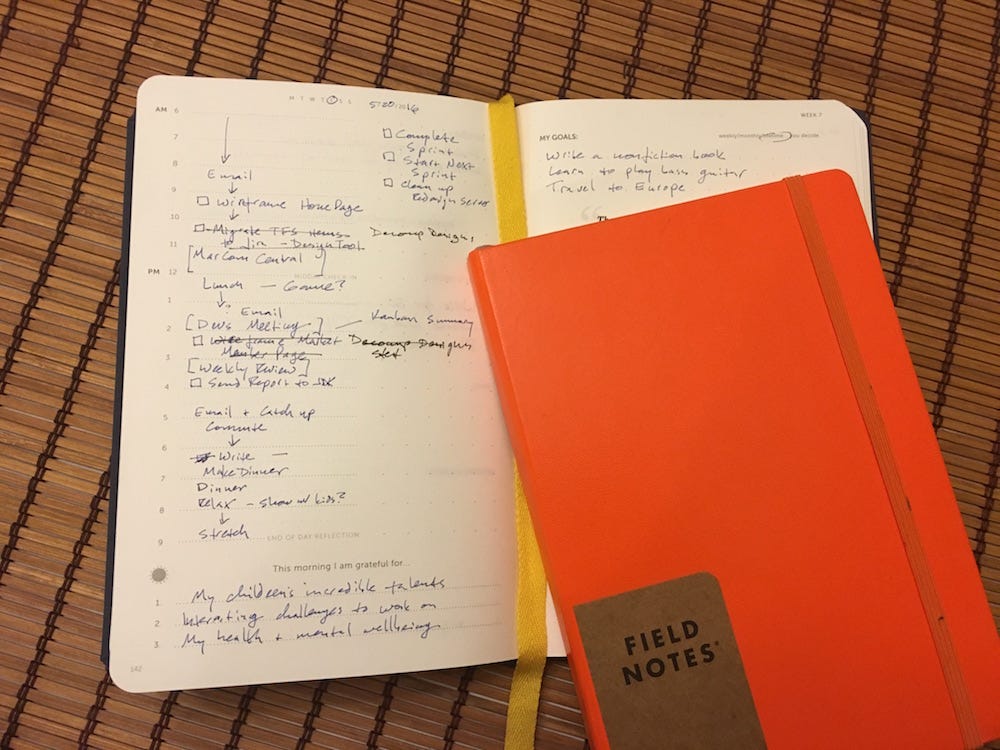 M T W T F S S 5/20/2016
AM 6
7
8
Email
9
Wireframe HomePage
10
Migrate TFS items
to Jira - Design Tool
Decomp Designs
11
[MarCom Central]
PM 12
MIDDAY CHECK-IN
Lunch — Game?
1
Email
2
[Devs Meeting] — Kanban Summary
Wireframe Market Decomp Designs
3
Member Page
[Weekly Review]
4
Send Report to
5
Email + Catch up
Commute
6
Write —
Make Dinner
7
Dinner
Relax - show w/ kids?
8
Stretch
9
END OF DAY REFLECTION
This morning I am grateful for...
1. My children's incredible talents
2. Interesting challenges to work on
3. My health + mental wellbeing
142
Complete
Sprint
Start Next
Sprint
Clean up
Redesign Server
WEEK 7
MY GOALS: weekly/monthly/lifetime you decide
Write a nonfiction book
Learn to play bass guitar
Travel to Europe
FIELD
NOTES